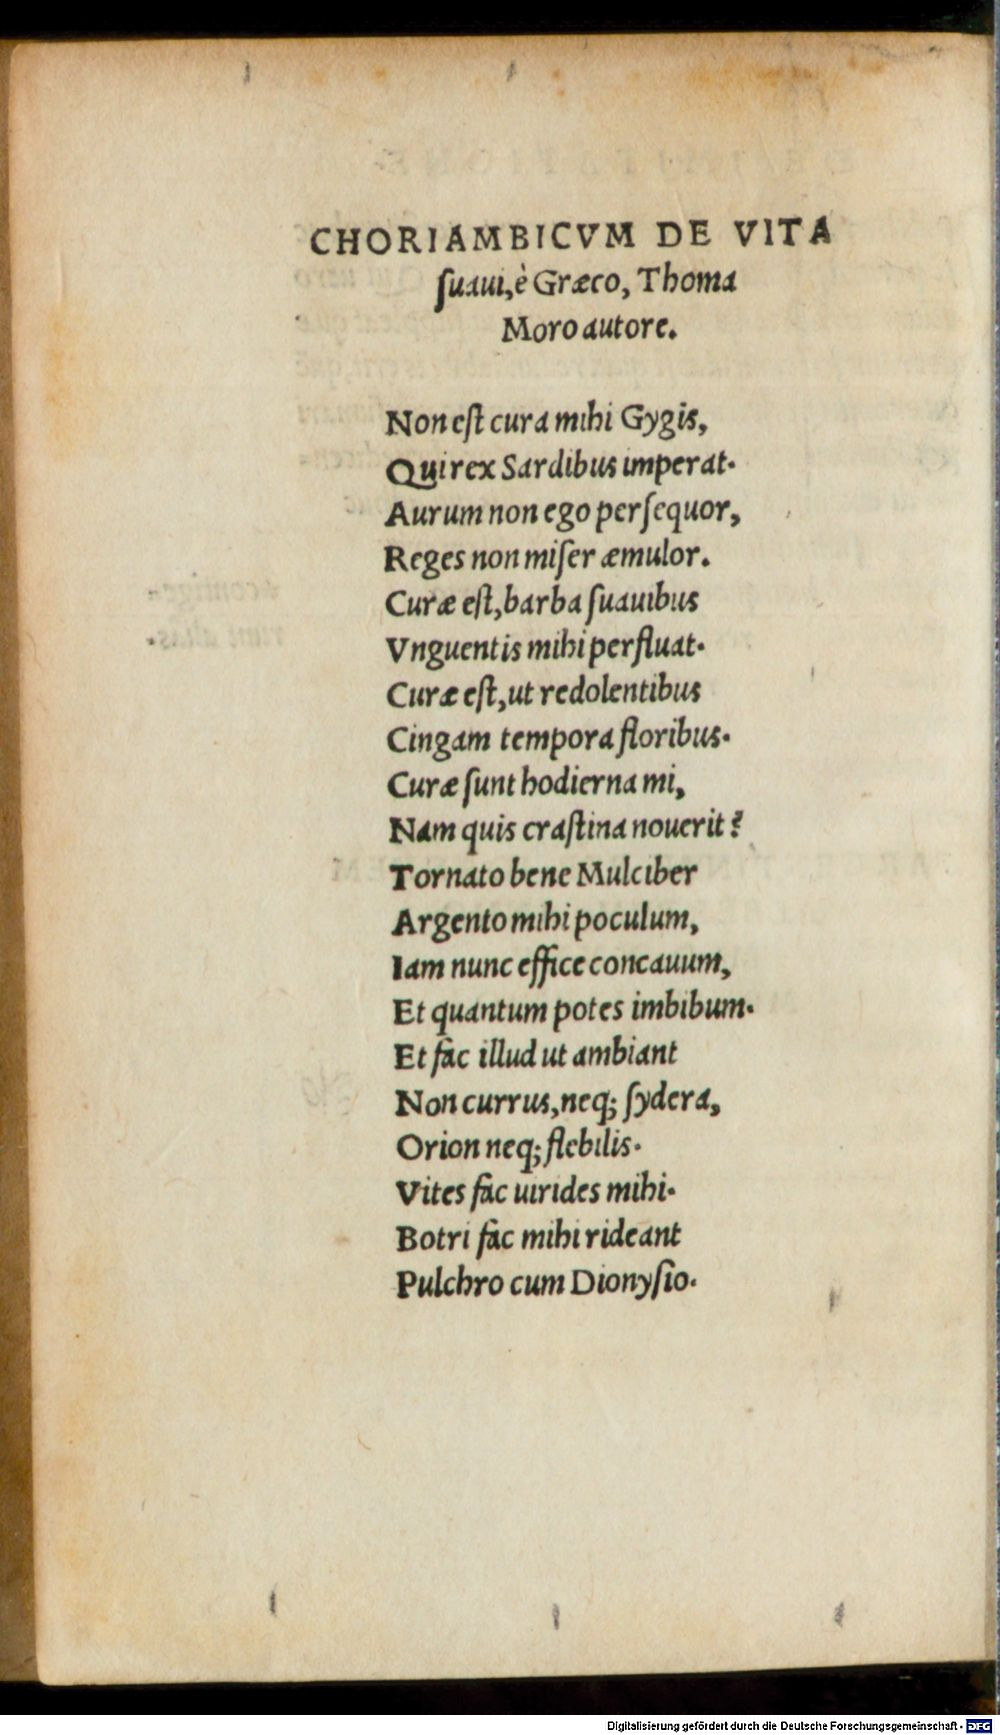 CHORIAMBICVM DE VITA
ſuaui, è Græco, Thoma
Moro autore.
Non eſt cura mihi Gygis,
Qui rex Sardibus imperat.
Aurum non ego perſequor,
Reges non miſer æmulor.
Curæ eſt, barba ſuauibus
Vnguentis mihi perfluat.
Curæ eſt, ut redolentibus
Cingam tempora floribus.
Curæ ſunt hodierna mi,
Nam quis craſtina nouerit?
Tornato bene Mulciber
Argento mihi poculum,
Iam nunc effice concauum,
Et quantum potes imbibum.
Et fac illud ut ambiant
Non currus, neq; ſydera,
Orion neq; flebilis.
Vites fac uirides mihi.
Botri fac mihi rideant
Pulchro cum Dionyſio.
Digitalisierung gefördert durch die Deutsche Forschungsgemeinschaft - DFG